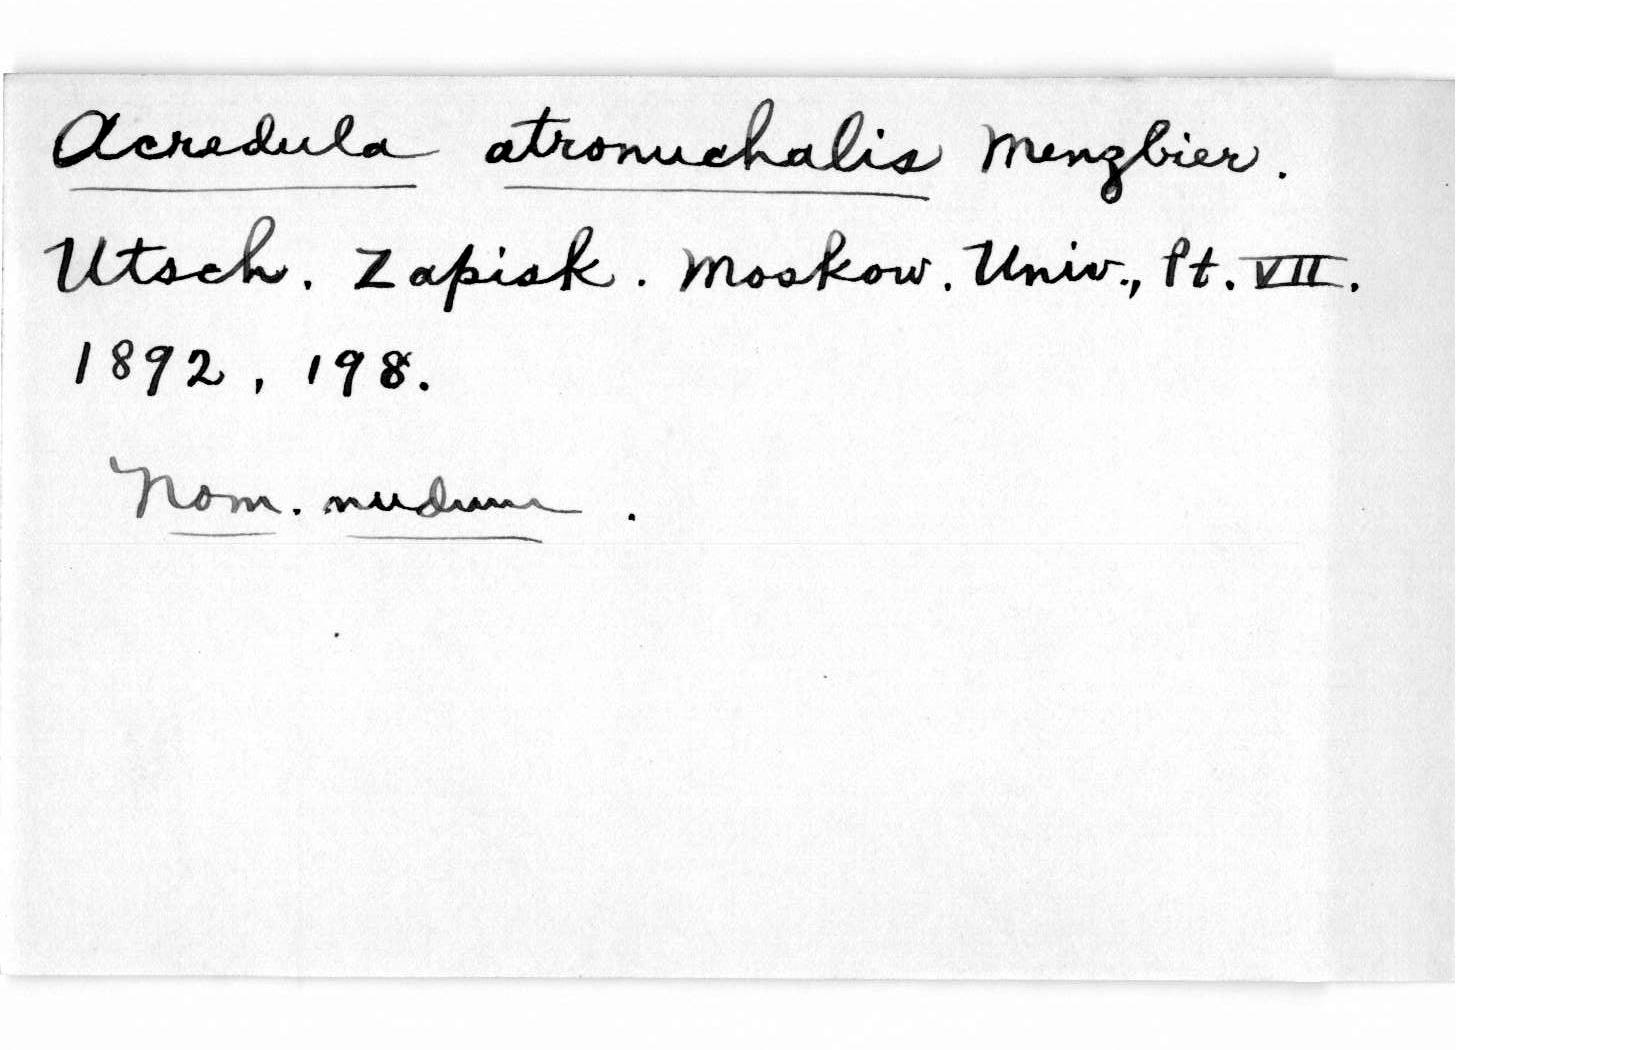 Acredula atronuchalis Menzbier.
Utsch. Zapisk. Moskow. Univ., Pt. VII.
1892, 198.
Nom. nudum.